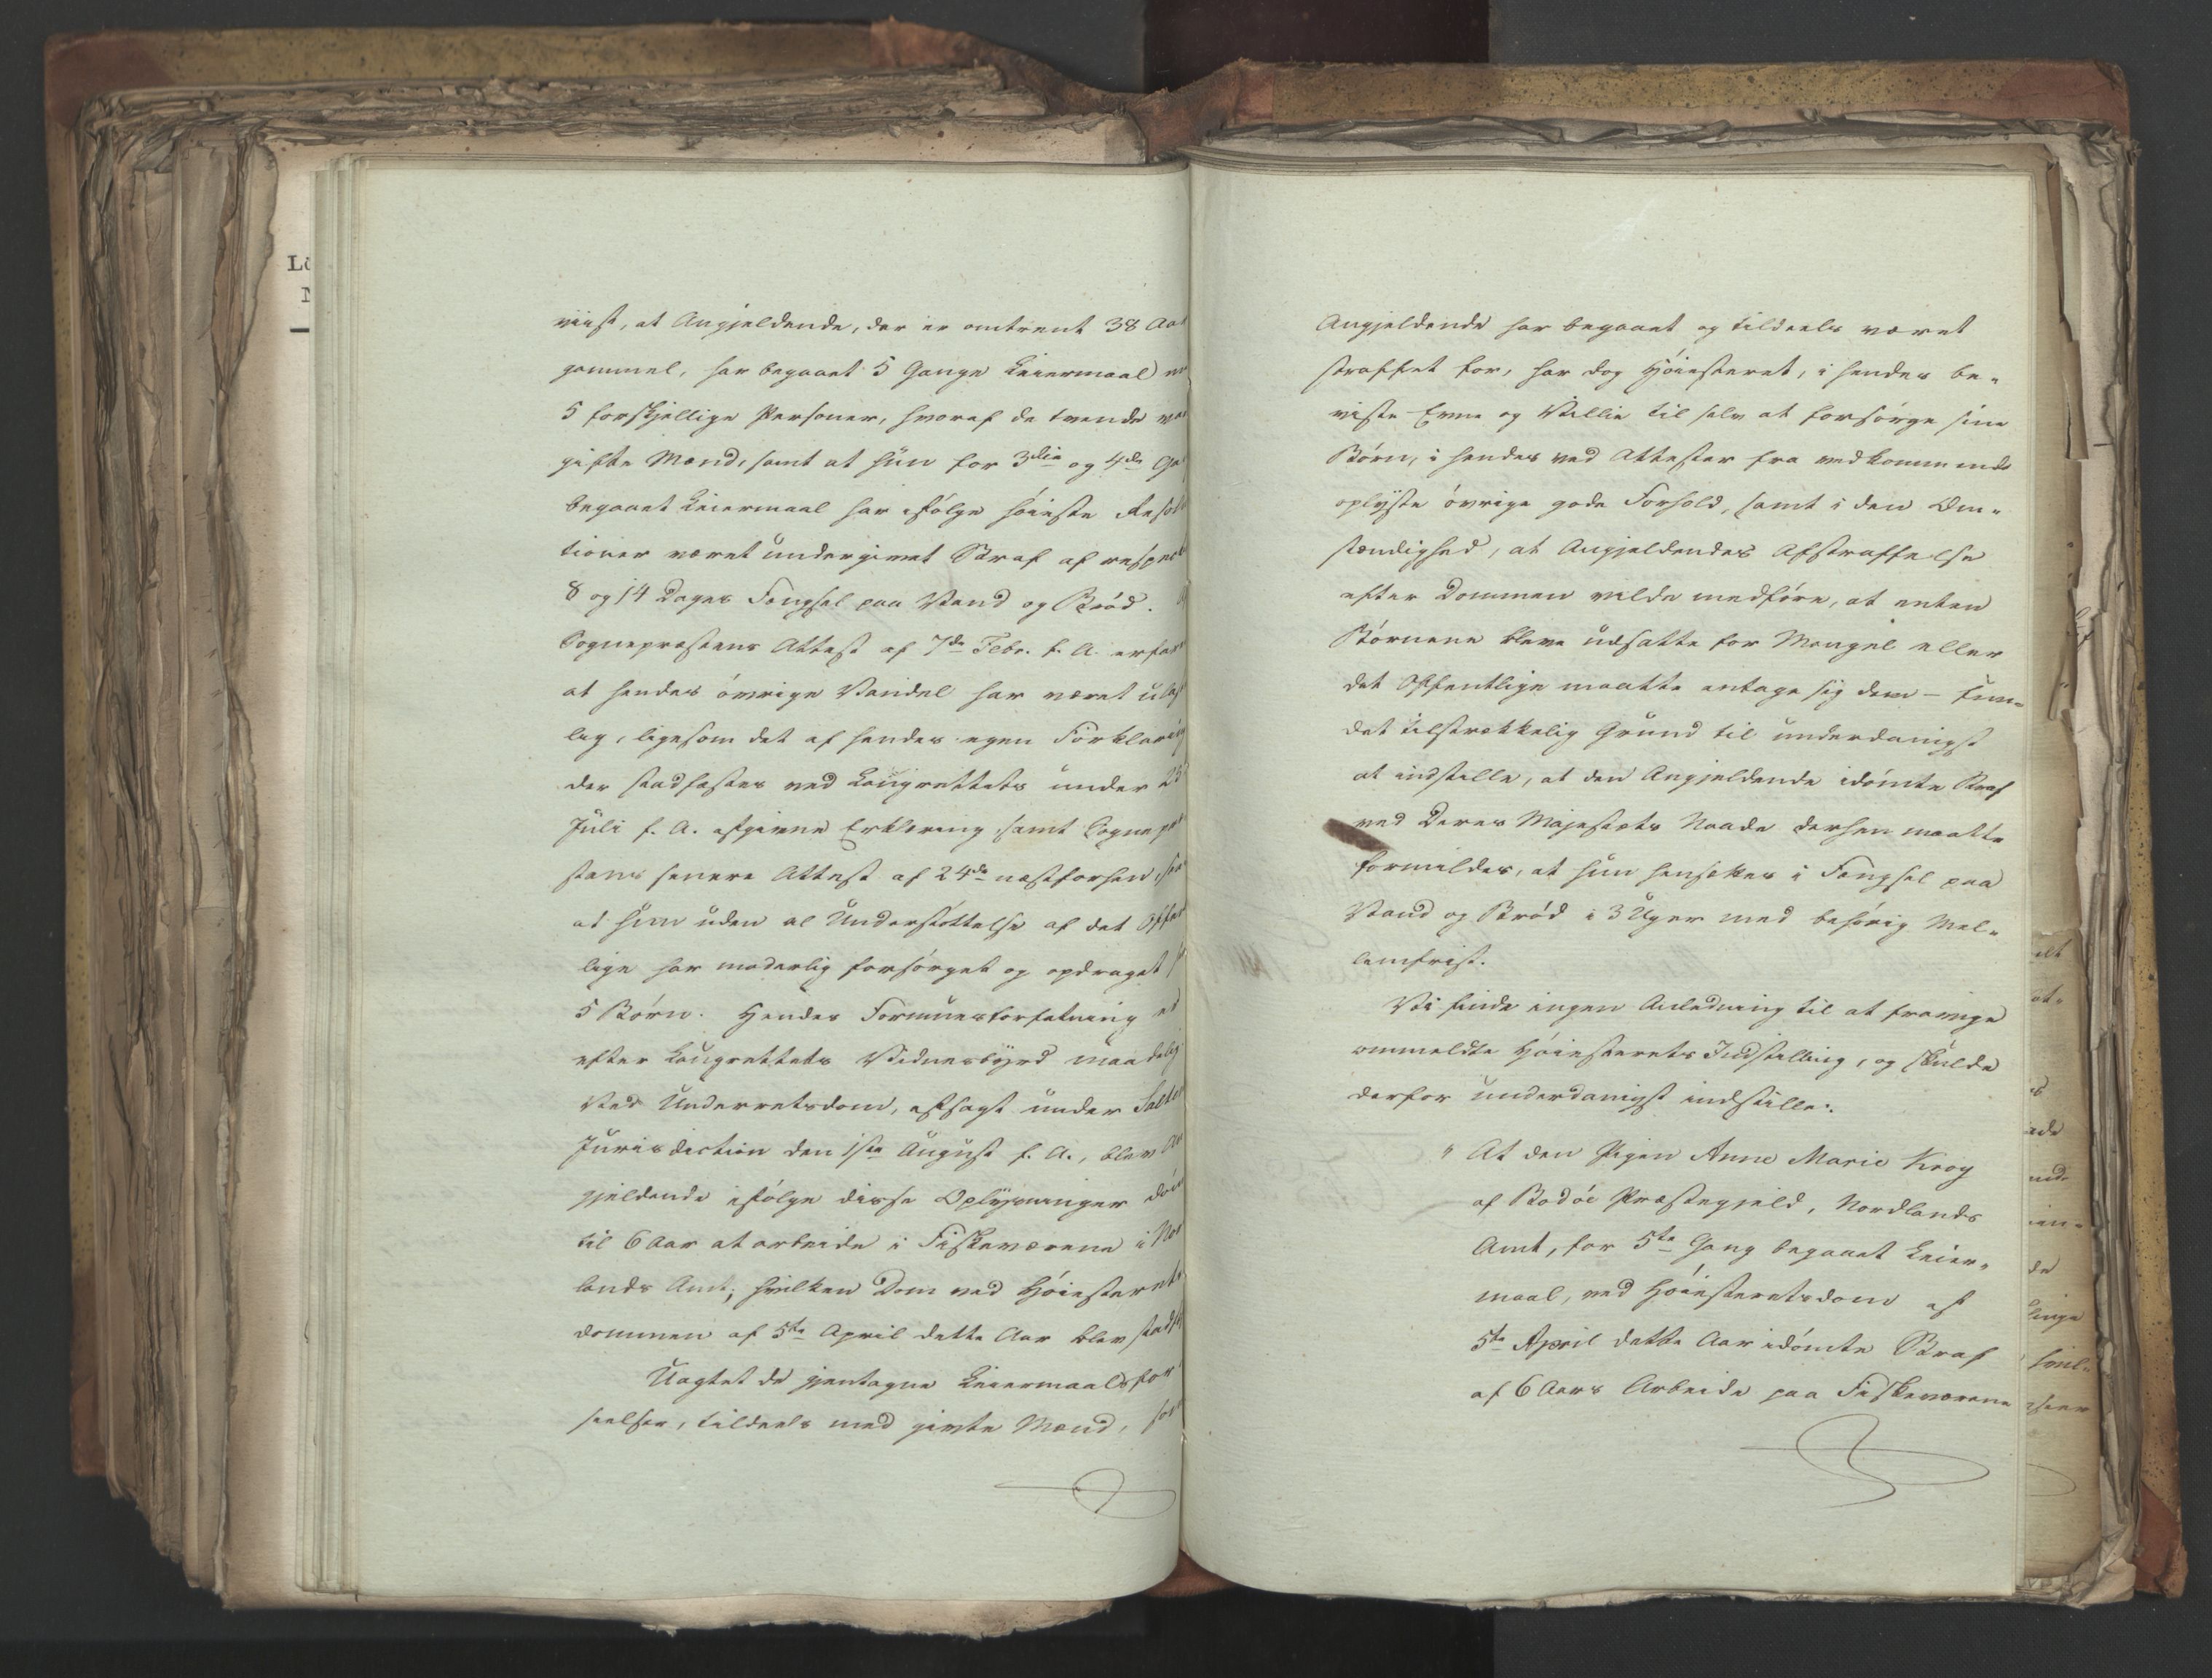 viist, at Angjeldende, der er omtrent 38 Aar
gammel, har begaaet 5 Gange Leiermaal
5 forskjellige Personer, hvoraf de tvende
gifte Mænd, samt at hun for 3die og 4de
begaaet Leiermaal har ifølge høieste Resol
tioner været undergivet Straf af respect
8 og 14 Dages Fængsel paa Vand og Brød.
Sognepræstens Attest af 7de Febr. f. A. erfar
at hendes øvrige Vandel har været ulas
lig, ligesom det af hendes egen Forklaring
der stadfæstes ved Laugrettets under 23
Juli f. A. afgivne Erklæring, samt Sognepræ
stens senere Attest af 24de næstforhen,
at hun uden al Understøttelse af det Offent
lige har moderlig forsørget og opdraget
5 Børn. Hendes Formuesforfatning er
efter Laugrettets Vidnesbyrd maadelig
Ved Underretsdom, afsagt under Salten
Jurisdiction den 1ste August f. A., blev An
gjeldende ifølge disse Oplysninger døm
til 6 Aar at arbeide i Fiskeværene i Nor
lands Amt; hvilken Dom ved Høiesterets
dommen af 5te April dette Aar blev stadf
Uagtet de gjentagne Leiermaalsfor
seelser, tildeels med givte Mænd, som
Angjeldende har begaaet og tildeels været
straffet for, har dog Høiesteret, i hendes be-
viste Evne og Villie til selv at forsørge sine
Børn, i hendes ved Attester fra vedkommende
oplyste øvrige gode Forhold, samt i den Om-
stændighed, at Angjeldendes Afstraffelse
efter Dommen vilde medføre, at enten
Børnene bleve udsatte for Mangel eller
det Offentlige maatte antage sig dem – fun-
det tilstrækkelig Grund til underdanigst
at indstille, at den Angjeldende idømte Straf
ved Deres Majestæts Naade derhen maatte
formildes, at hun hensættes i Fængsel paa
Vand og Brød i 3 Uger med behørig Mel-
lemfrist.
Vi finde ingen Anledning til at fravige
ommeldte Høiesterets Indstilling, og skulde
derfor underdanigst indstille:
" At den Pigen Anne Marie Krog
af Bodøe Præstegjeld, Nordlands
Amt, for 5te Gang begaaet Leier-
maal, ved Høiesteretsdom af
5te April dette Aar idømte Straf
af 6 Aars Arbeide paa Fiskeværene